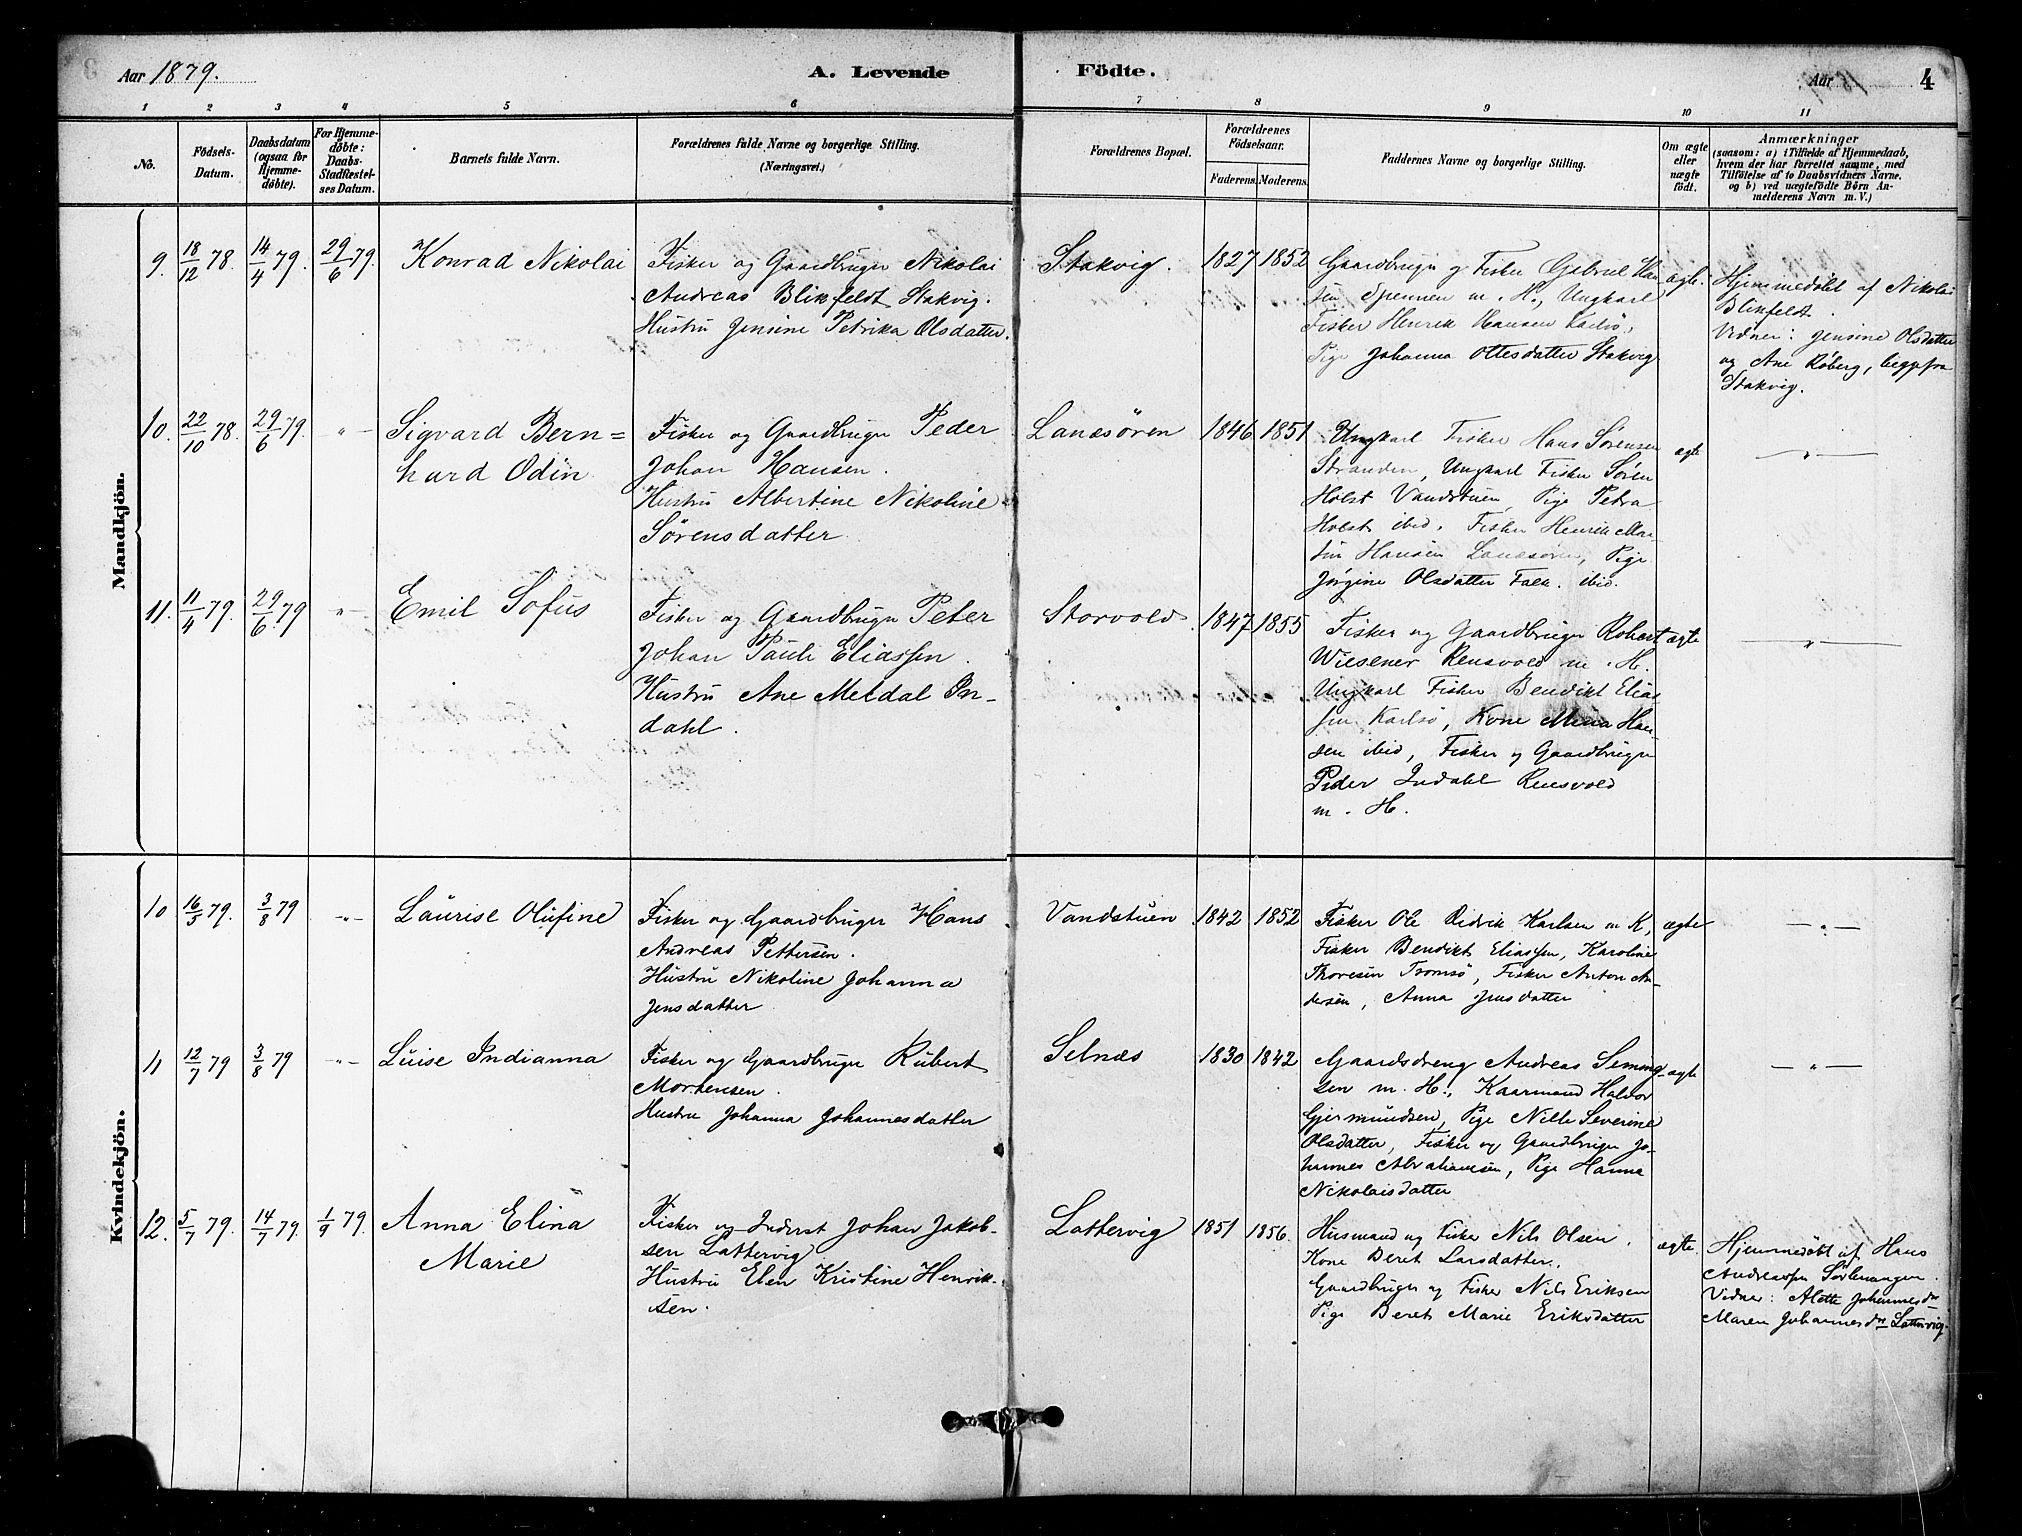 Aar 1879.
A. Levende Födte.
Aar
4
1 2 3 4 5 6 7 8 9 10 11
No.
Fødsels-
Datum.
Daabsdatum
(ogsaa før
Hjemme-
døbte).
For Hjemme-
døbte:
Daabs-
Stadfæstel-
ses Datum.
Barnets fulde Navn.
Forældrenes fulde Navne og borgerlige Stilling.
(Næringsvei.)
Forældrenes Bopæl.
Forældrenes
Fødselsaar.
Faderens. Moderens.
Faddernes Navne og borgerlige Stilling.
Om ægte
eller
uægte
født.
Anmærkninger
(saasom: a) i Tilfælde af Hjemmedaab,
hvem der har forrettet samme, med
Tilføielse af to Daabsvidners Navne,
og b) ved uægtefødte Børn An-
melderens Navn m. V.)
Mandkjön.
9. 18/12 78. 14/4 79. 29/6 79.
Konrad Nikolai
Fisker og Gaardbruger Nikolai
Andreas Blikfeldt Stakvig.
Hustru Jensine Petrika Olsdatter.
Stakvig. 1827 1852
Gaardbruger og Fisker Gabriel Han
sen Spennen m. H., Ungkarl
Fisker Henrik Hansen Karlsö,
Pige Johanna Ottesdatter Stakvig
ægte.
Hjemmedöbt af Nikolai
Blikfeldt.
Vidner: Jensine Olsdatter
og Ane Röberg, begge fra
Stakvig.
10. 22/10 78. 29/6 79. -"-
Sigvard Bern=
hard Odin
Fisker og Gaardbruger Peder
Johan Hansen.
Hustru Albertine Nikoline
Sörensdatter
Lanesören 1846 1851
Ungkarl Fisker Hans Sörensen
Stranden, Ungkarl Fisker Sören
Holst Vandstuen, Pige Petra
Holst ibid. Fisker Henrik Mar
tin Hansen Lanesören, Pige
Jörgine Olsdatter Falk. ibid.
ægte
-"-
11. 11/4 79. 29/6 79 -"-
Emil Sofus
Fisker og Gaardbruger Peter
Johan Pauli Eliassen.
Hustru Ane Meldal In-
dahl.
Storvold. 1847 1855
Fisker og Gaardbruger Robert
Wiesener Rensvold m. H.
Ungkarl Fisker Bendikt Elias
sen Karlsö, Kone Mina Han
sen ibid, Fisker og Gaardbruger
Peder Indahl Rensvold
m. H.
ægte
-"-
Kvindekjön.
10 16/5 79. 3/8 79 -"-
Laurise Olufine
Fisker og Gaardbruger Hans
Andreas Pettersen.
Hustru Nikoline Johanna
Jensdatter
Vandstuen 1842 1852
Fisker Ole Karlsen m K,
Fisker Bendikt Eliassen, Karoline
Thoresen Tromsö, Fisker Anton An-
dersen, Anna Jensdatter
ægte
-"-
11 12/7 79 3/8 79 -"-
Luise Indianna
Fisker og Gaardbruger Rubert
Mortensen.
Hustru Johanna Johannesdatter
Selnæs 1830 1842
Gaardsdreng Andreas Semming-
sen m. H., Kaarmand Haldor
Gjermundsen, Pige Nille Severine
Olsdatter, Fisker og Gaardbruger Jo-
hannes Abrahamsen, Pige Hanna
Nikolaisdatter
ægte
-"-
12. 5/7 79. 14/7 79. 1/9 79.
Anna Elina
Marie
Fisker og Inderst Johan Jakob-
sen Lattervig.
Hustru Elen Kristine Henrik-
sen.
Lattervig 1851 1856.
Husmand og Fisker Nils Olsen.
Kone Beret Larsdatter.
Gaardbruger og Fisker Nils Eriksen
Pige Beret Marie Eriksdatter
ægte.
Hjemmedöbt af Hans
Andreassen Sörlenangen.
Vidner: Alette Johannesdtr
Maren Johannesdtr Lattervig.